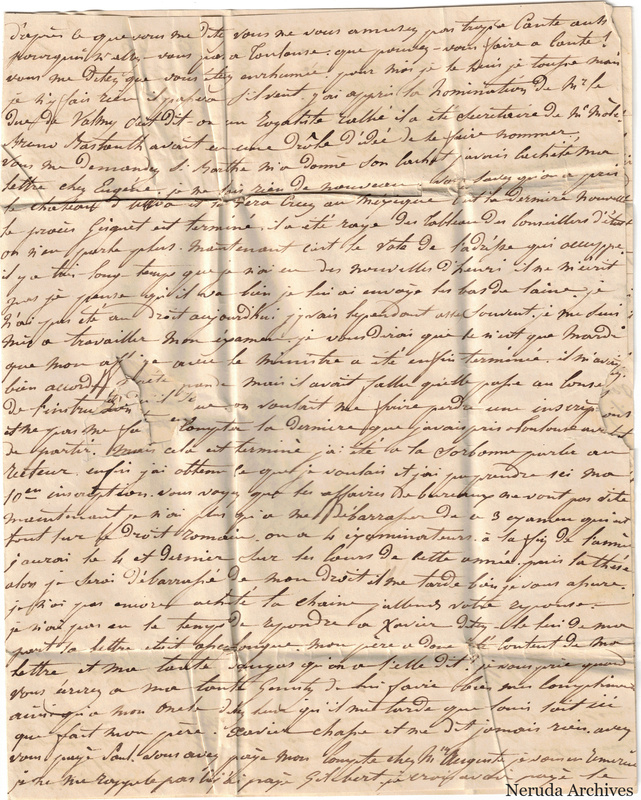 d'après ce que vous me dites vous ne vous amusez pas trop à Cante aussi
pourquoi n'allez-vous pas a Toulouse. que pouvez-vous faire a Cante!
vous me dites que vous etes enrhumée, pour moi je le suis je tousse mais
je n'y fais rien il passera s'il veut. j'ai appris la nomination de Mr le
Duc de Valmy c'est dit on un Royaliste rallié il a été secretaire de Mr Molé
avait eu une drole d'idée de le faire nommer,
vous me demandez si Marthe m'a donné son cachet j'avais cacheté ma
lettre chez Eugène. je ne sais rien de nouveau. vous savez qu'on a pris
le chateau d'Ulloa et la Vera Cruz au Mexique c'est la derniere nouvelle
le procès Gisquet est terminé. il a été rayé des tableau des conseillers d'état
on n'en parle plus. maintenant c'est le vote de l'adresse qui occupe.
il y a très long temps que je n'ai eu des nouvelles d'henri il ne m'écrit
pas je pense qu'il va bien je lui ai envoyé les bas de laine. je
n'ai pas été au Droit aujourdhui j'y vais cependant assez souvent. je me suis
mis a travailler mon examen. je vous dirai que ce n'est que mardi
que mon avec le ministre a été enfin terminée. il m'avait
bien accordé mais il avait fallu qu'elle passe au conseil
de l'instruction on voulait me faire perdre une inscription
et ne pas me compter la derniere que j'avais pris a toulouse avant
de partir. mais cela est terminé j'ai été a la Sorbonne parler au
recteur. enfin j'ai obtenu ce que je voulais et j'ai pu prendre ici ma
10eme inscription. vous voyez que les affaires de bureaux ne vont pas vite
maintenant je n'ai plus qu'a me débarrasser de ce 3 examen qui est
tout sur le droit romain. on a 4 examinateurs. a la fin de l'année
j'aurai le 4 et dernier sur les cours de cette année. puis la thèse
alors je serai débarrassé de mon droit il me tarde bien je vous assure.
je n'ai pas encore acheté la chaine j'attends votre reponse.
je n'ai pas eu le temps de repondre a Xavier dites-le lui de ma
part sa lettre etait mon père a donc été content de ma
lettre et ma tante qu'en a t'elle dit? je vous prie quand
vous écrirez a ma tante de lui faire bien mes compliments
ainsi qu'a mon oncle dites leur qu'il me tarde que Louis soit ici
que fait mon père. Xavier chasse et ne dit jamais rien. avez
vous payé Paul. vous avez payé mon compte chez Mr Auguste je vous en remercie
je ne me rappele pas si j'ai payé Gilibert je crois avoir payé le
Neruda Archives